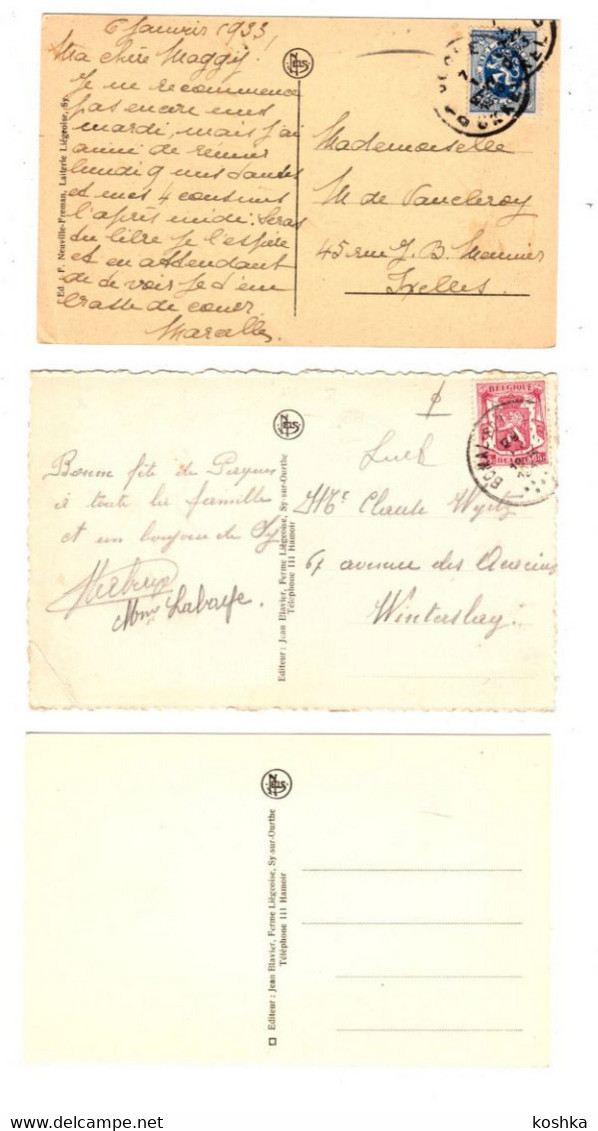 6 Janvris 1933
Ma chère Maggy!
Je ne recommence
pas encore
mardi, mais j'ai
de réunir
lundi 9
et mes 4 cousins
l'après midi. Seras
tu libre je l'espère
et en attendant
de te voir je t'em
brasse de coeur
Marcelle
Ed. J. F. Neuville-Freman, Laiterie Liégeoise, Sy.
NELS
Mademoiselle
M de Vaucleroy
45 rue J. B. Meunier
Ixelles.
Bonne fête de Pâques
à toute la famille
et un bonjour de Sy
Mme Labaye.
Editeur : Jean Blavier, Ferme Liégeoise, Sy-sur-Ourthe
Téléphone 111 Hamoir
NELS
BELGIQUE
BELGIE
BOMAL
Mr Claude
67 avenue des
Winterslag
NELS
Editeur : Jean Blavier, Ferme Liégeoise, Sy-sur-Ourthe
Téléphone 111 Hamoir
delcampe.net
koshka